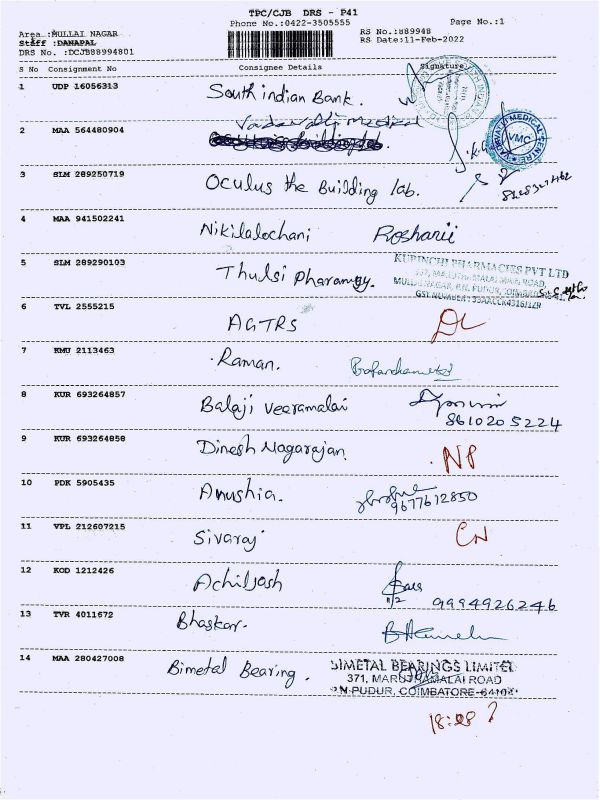 TPC/CJB DRS - P41
Phone No.:0422-3505555
Page No.:1
Area :MULLAI NAGAR
Staff :DANAPAL
DRS No. :DCJB88994801
RS No.:889948
RS Date:11-Feb-2022
S No Consignment No Consignee Details Signature
1 UDP 16056313 South indian Bank.
2 MAA 564480904 Vadavalli Medical
VMC
3 SLM 289250719 Oculus the Building lab.
4 MAA 941502241 Nikilalochani Rosharii
5 SLM 289290103 Thulsi Pharamgy.
KURINCHI PHARMACIES PVT LTD
6 TVL 2555215 AGTRS DL
7 KMU 2113463 Raman.
8 KUR 693264857 Balaji Veeramalai
8610205224
9 KUR 693264858 Dinesh Nagarajan. NP
10 PDK 5905435 Anushia.
9677612850
11 VPL 212607215 Sivaraj CN
12 KOD 1212426 Achiljosh
9994926246
13 TVR 4011672 Bhaskar.
14 MAA 280427008 Bimetal Bearing.
BIMETAL BEARINGS LIMITED
371, MARUTHAMALAI ROAD
P.N-PUDUR, COIMBATORE-